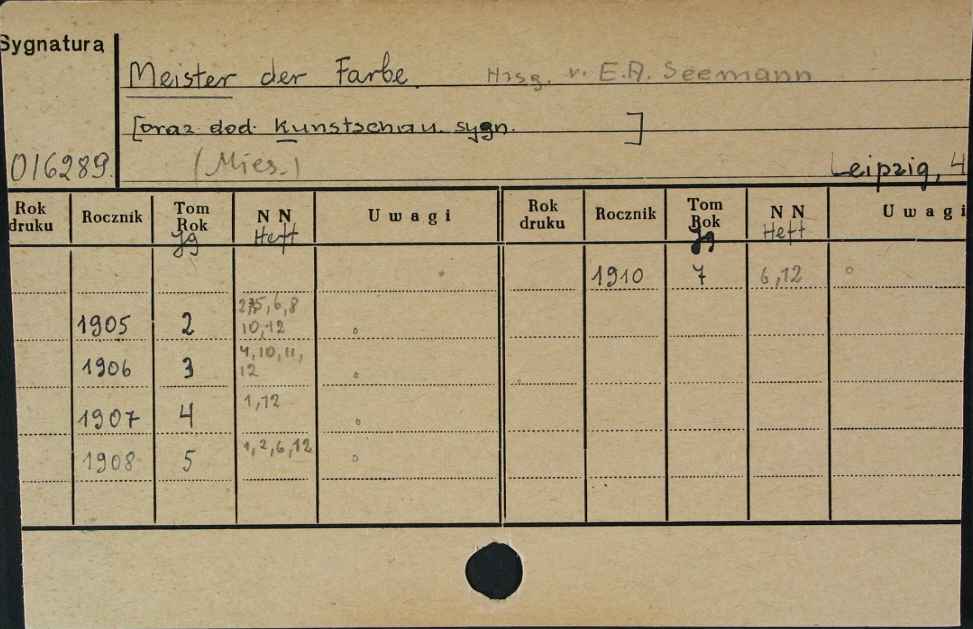 Sygnatura
Meister der Farbe. Hrsg. v. E.A. Seemann
[oraz dod. Kunstschau. sygn. ]
016289. (Mies.) Leipzig, 4
Rok druku Rocznik Tom Rok Jg N N Heft Uwagi Rok druku Rocznik Tom Rok Jg N N Heft Uwagi
1910 7 6,12
1905 2 5,6,8
10,12
1906 3 4,10,11,
12
1907 4 1,12
1908 5 1,2,6,12